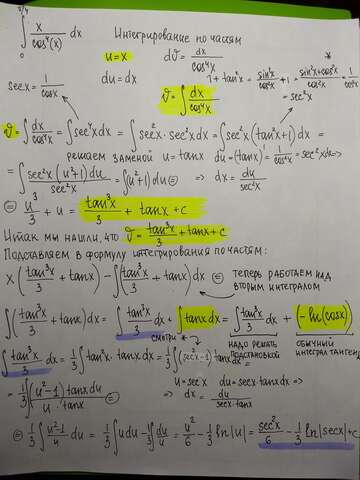 ∫₀^{π/4} x/cos⁴(x) dx Интегрирование по частям
u=x dϑ = dx/cos⁴x *
sec x = 1/cos x du = dx ϑ = ∫ dx/cos⁴x 1+tan²x = sin²x/cos²x + 1 = sin²x+cos²x/cos²x = 1/cos²x = sec²x
ϑ = ∫ dx/cos⁴x = ∫ sec⁴x dx = ∫ sec²x · sec²x dx = ∫ sec²x (tan²x+1) dx =
решаем заменой u = tanx du = (tanx)' = 1/cos²x = sec²x dx ⇒
= ∫ sec²x (u²+1) du / sec²x = ∫(u²+1) du ⊜ ⇒ dx = du/sec²x
⊜ u³/3 + u = tan³x/3 + tanx + c
Итак мы нашли, что ϑ = tan³x/3 + tanx + c
Подставляем в формулу интегрирования по частям:
x (tan³x/3 + tanx) − ∫(tan³x/3 + tanx) dx ⊜ теперь работаем над вторым интегралом
∫(tan³x/3 + tanx) dx = ∫ tan³x/3 dx + ∫ tanx dx = ∫ tan³x/3 dx + (−ln(cosx))
смотри * надо решать подстановкой обычный интеграл тангенса
∫ tan³x/3 dx = 1/3 ∫ tan²x · tanx dx = 1/3 ∫ (sec²x−1) tanx dx =
u = sec x du = secx · tanx dx ⇒
= 1/3 ∫ (u²−1) tanx du / u · tanx ⊜ ⇒ dx = du/secx·tanx
⊜ 1/3 ∫ u²−1/u du = 1/3 ∫ u du − 1/3 ∫ du/u = u²/6 − 1/3 ln|u| = sec²x/6 − 1/3 ln|secx| + c